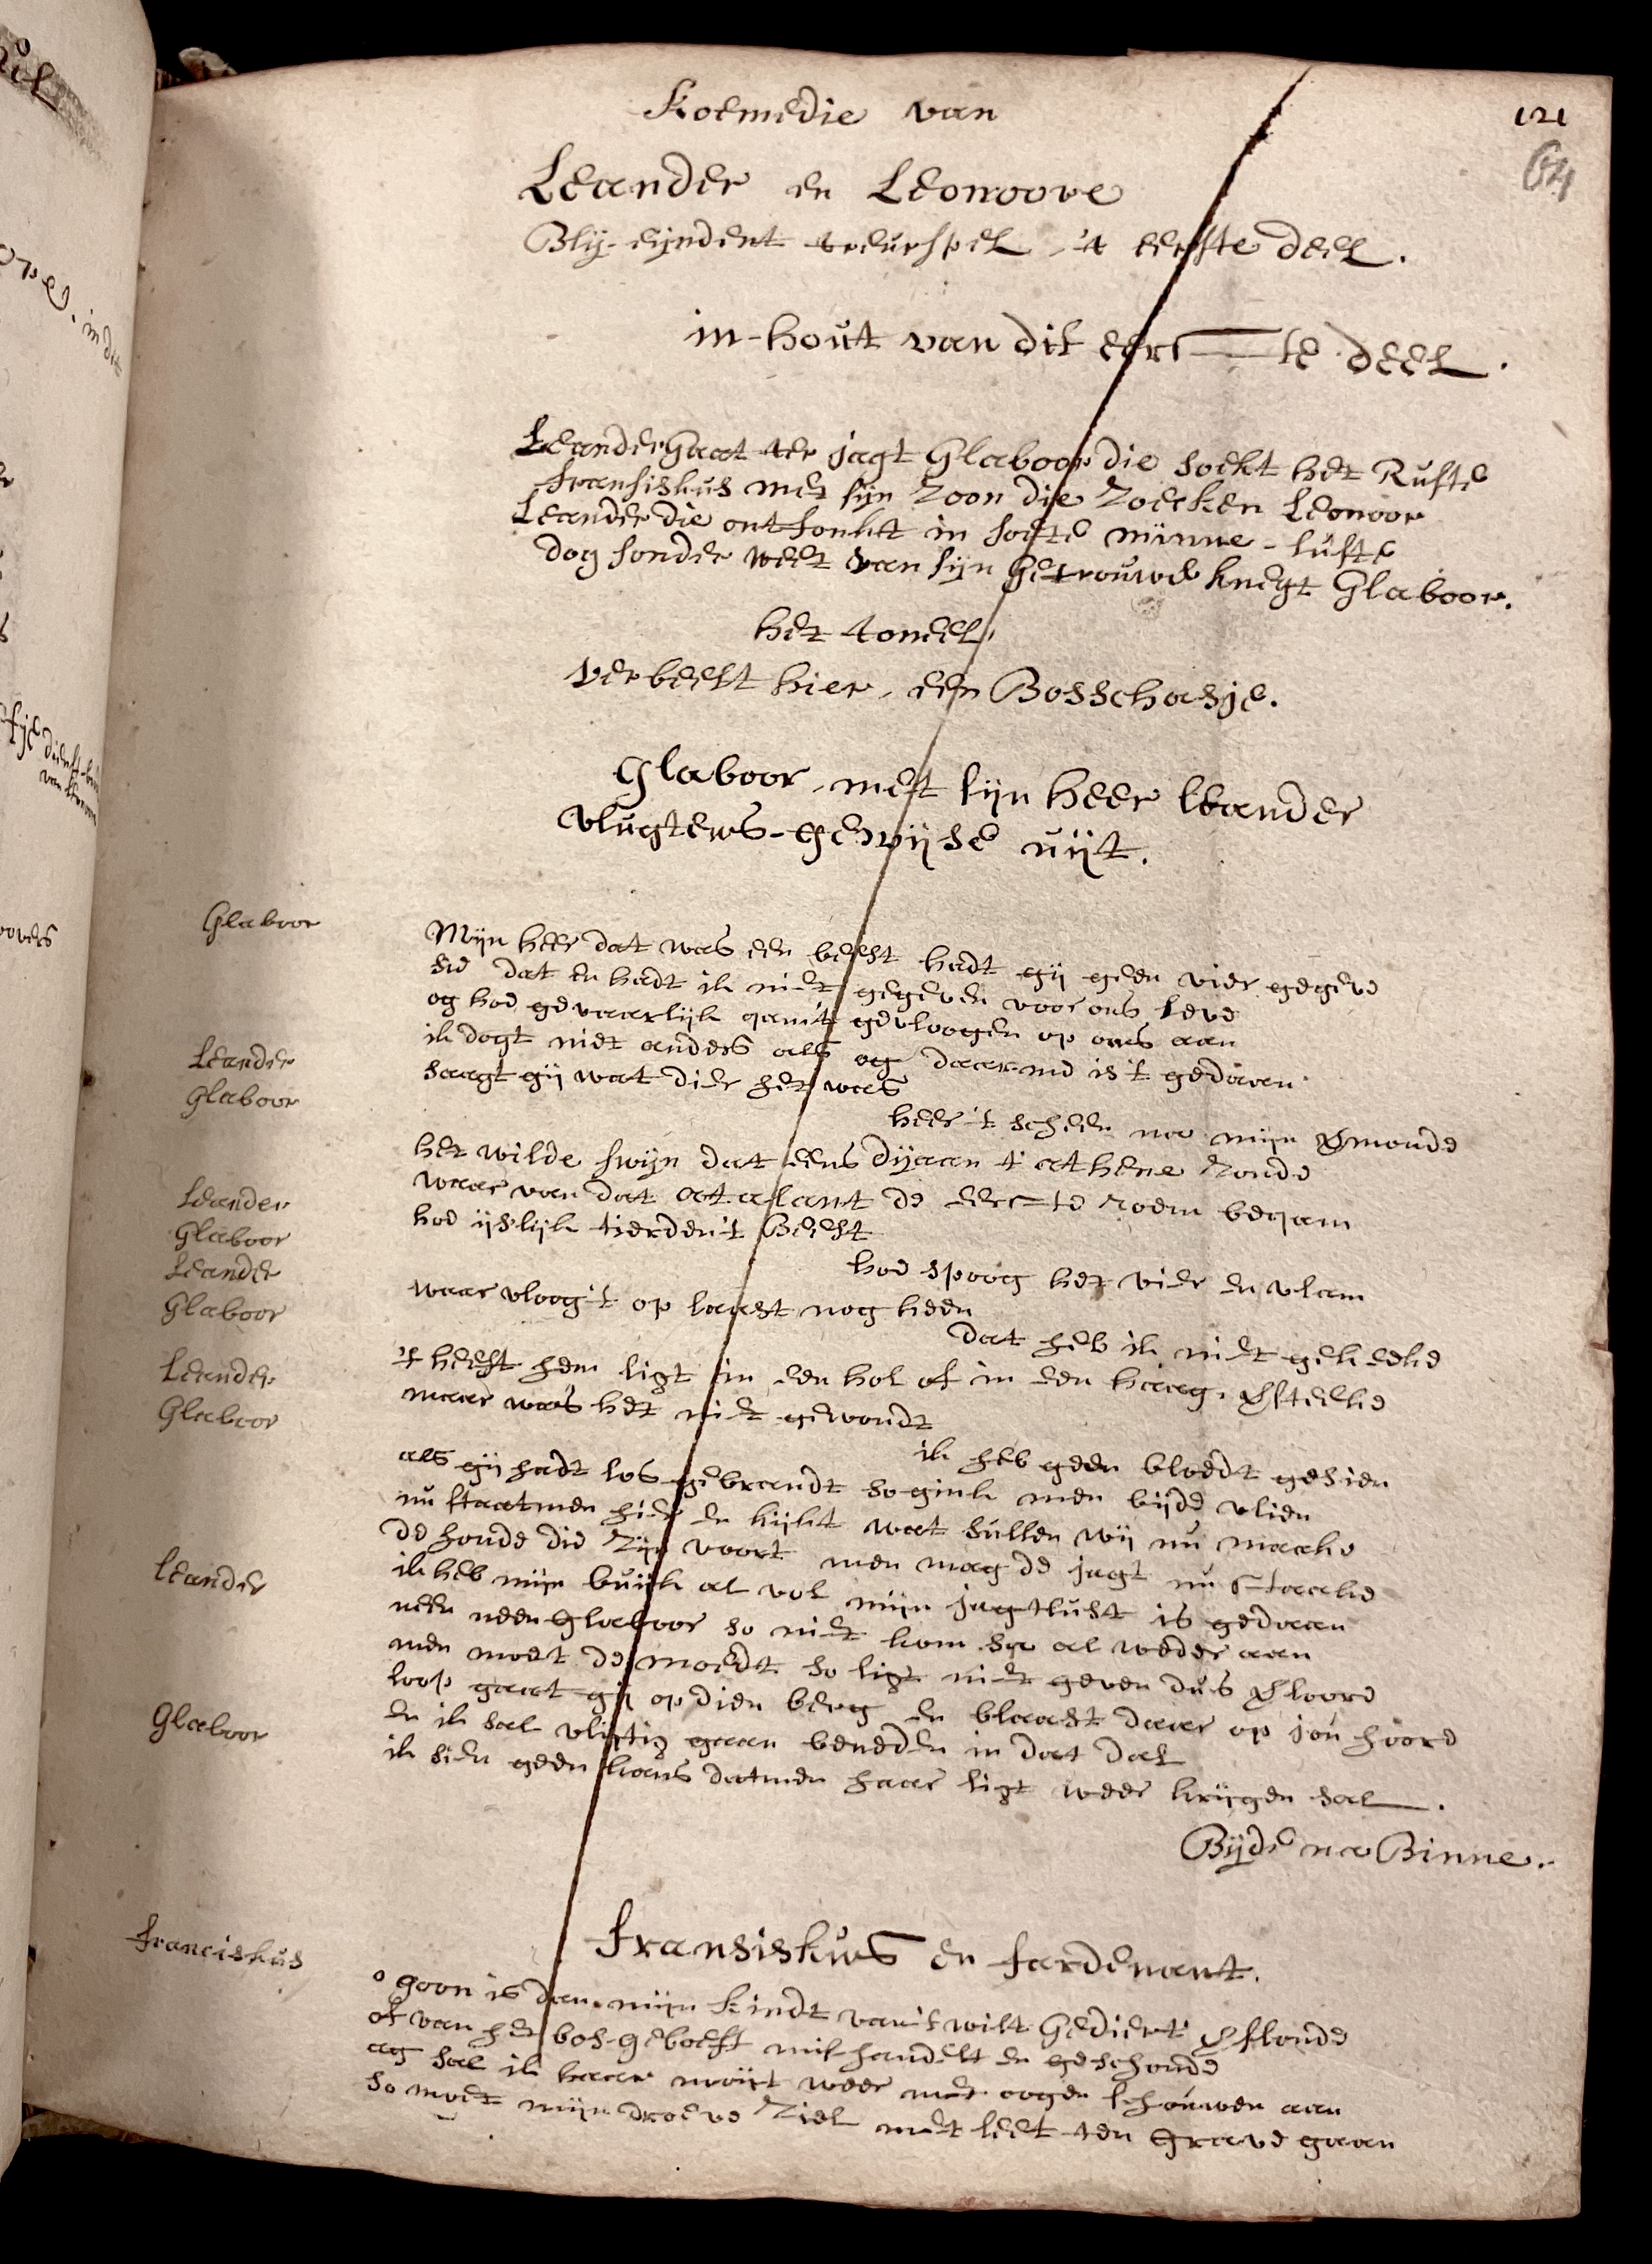 Koemedie van
121
64
Leander en Leonoore
Blij-eijndent treurspel, 't eerste deel.
in-hout van dit eerste deel.
Leander gaat ter jagt Glaboor die soekt het Ruste
fransiskus met sijn Zoon die Zoecken Leonoor
Leander die ontfonkt in soete minne-luste
dog sonder weet van sijn getrouwe knegt Glaboor.
het toneel,
verbeelt hier, een Bosschasje.
Glaboor, met sijn heer leander
vlugtens-gewijse uijt.
Glaboor Mijn heer dat was een beest hadt gij geen vier gegeve
sie dat en hadt ik niet gegeven voor ons leve
og hoe gevaarlijk quam't gevloogen op ons aan
ik dogt niet anders als og daarme is't gedaan
Leander saagt gij wat dier het was
Glaboor heer 't scheen na mijn vermonde
het wilde swijn dat eens dijaan t' athene zonde
waar van dat atalant de eerste roem bequam
Leander hoe ijslijk tierden't Beest
Glaboor hoe spoog het vier en vlam
Leander waar vloog't op laast nog heen
Glaboor dat heb ik niet gekeeke
't heeft hem ligt in een hol of in een haag versteeke
Leander maar was het niet gewondt
Glaboor ik heb geen bloedt gesien
als gij hadt los gebrandt so gink men bijde vlien
nu staatmen hier en kijkt wat sullen wij nu maake
de honde die Zijn voort men mag de jagt nu staake
ik heb mijn buijk al vol mijn jagtlust is gedaan
Leander neen neen Glaboor so niet kom sa al weder aan
men moet de moedt so ligt niet geven dus verloore
loop gaat gij op dien berg en blaast daar op jou hoore
en ik sal vlijtig gaan beneden in dat dal
Glaboor ik sien geen kans datmen haar ligt weer krijgen sal.
Bijde na Binne.
fransiskus en fardenant.
franciskus o goon is dan mijn kindt van't wilt Gediert verslonde
of van het bos-geboeft mishandelt en geschonde
ag sal ik haar nooijt weer met oogen schouwen aan
so moet mijn droeve Ziel met leet ten grave gaan